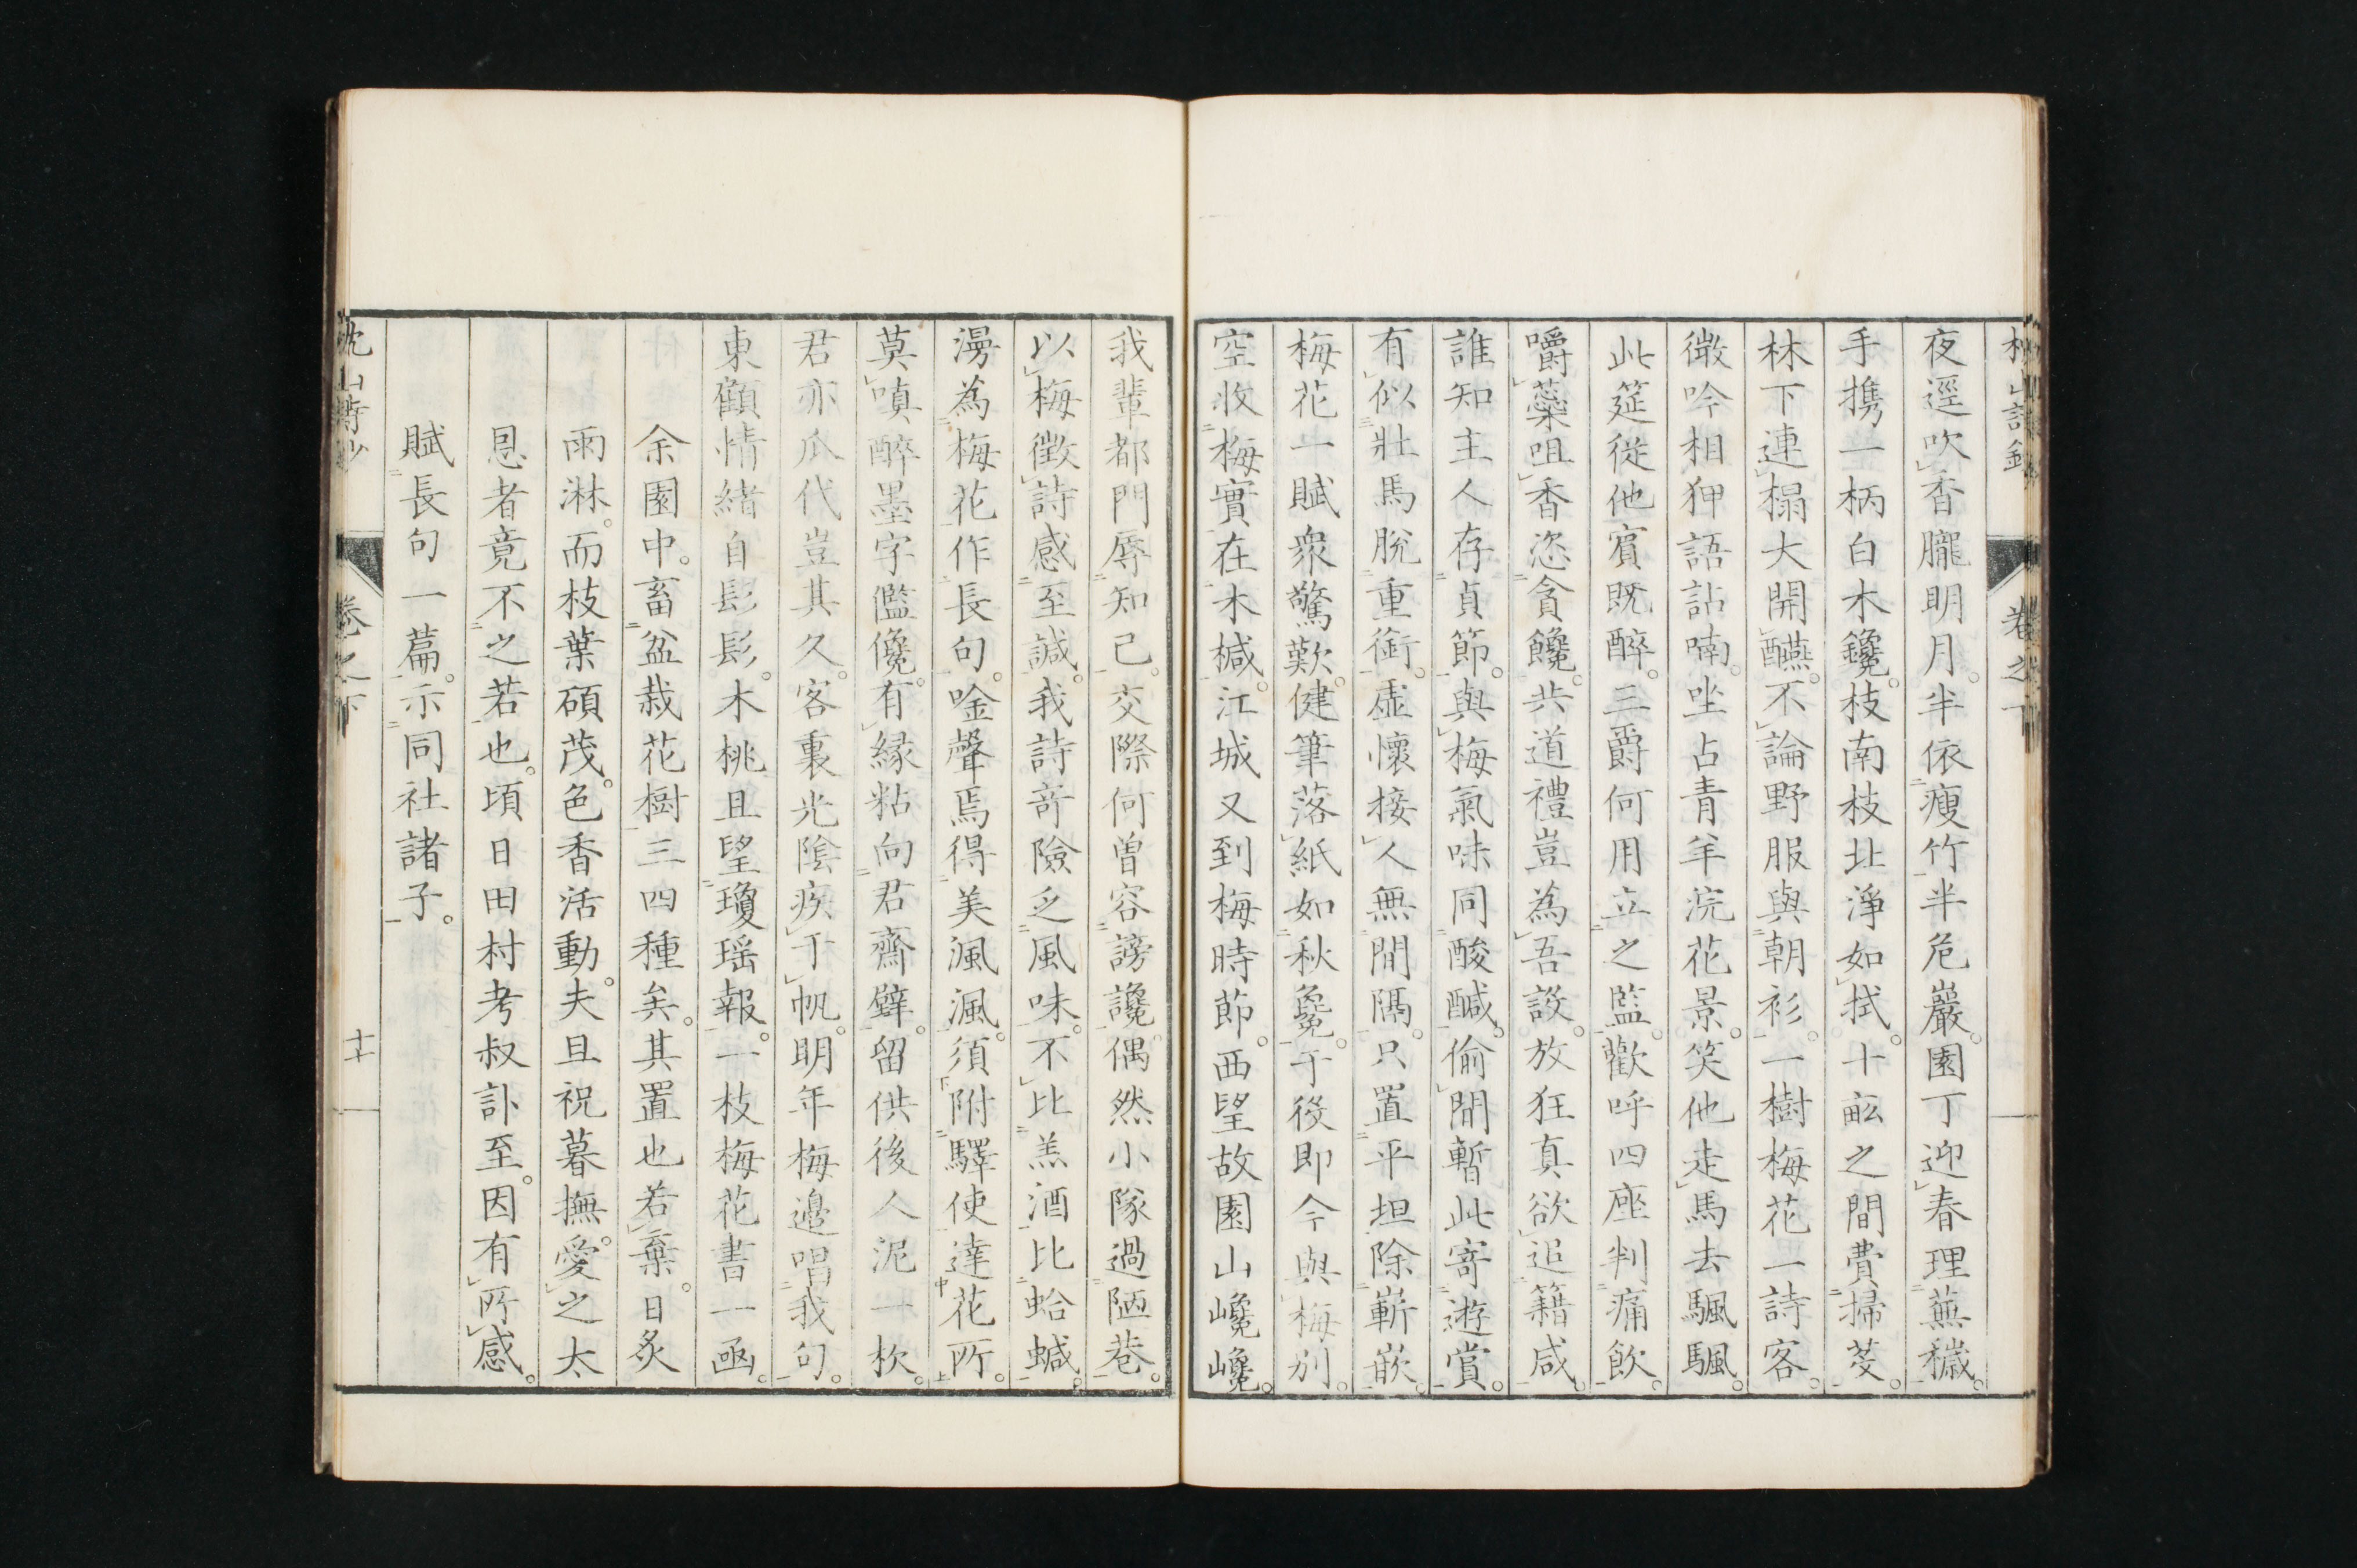 夜逕吹香朧明月。半依瘦竹半危巖。園丁迎春理蕪穢。
手携一柄白木鑱。枝南枝北淨如拭。十畝之間費掃芟。
林下連榻大開醼。不論野服與朝衫。一樹梅花一詩客。
微吟相狎語詀喃。坐占青羊浣花景。笑他走馬去颿颿。
此筵從他賓既醉。三爵何用立之監。歡呼四座判痛飲。
嚼蘂咀香恣貪饞。共道禮豈為吾設。放狂真欲追籍咸。
誰知主人存貞節。與梅氣味同酸醎。偷閒暫此寄遊賞。
有似壯馬脫重銜。虛懷接人無間隔。只置平坦除嶄嵌。
梅花一賦衆驚歎。健筆落紙如秋毚。于役即今與梅別。
空收梅實在木椷。江城又到梅時節。西望故園山巉巉。
我輩都門辱知己。交際何曾容謗讒。偶然小隊過陋巷。
以梅徵詩感至諴。我詩竒險乏風味。不比羔酒比蛤䗁。
漫為梅花作長句。唫聲焉得美渢渢。須附驛使達花所。
莫嗔醉墨字儖儳。有縁粘向君齋壁。留供後人泥一杴。
君亦瓜代豈其久。客裏光陰疾于帆。明年梅邊唱我句。
東顧情緒自髟髟。木桃且望瓊瑶報。一枝梅花書一凾。
余園中。畜盆栽花樹三四種矣。其置也若棄。日炙
雨淋。而枝葉碩茂。色香活動。夫旦視暮撫。愛之太
恩者竟不之若也。頃日田村考叔訃至。因有所感。
賦長句一篇。示同社諸子。
卷之下